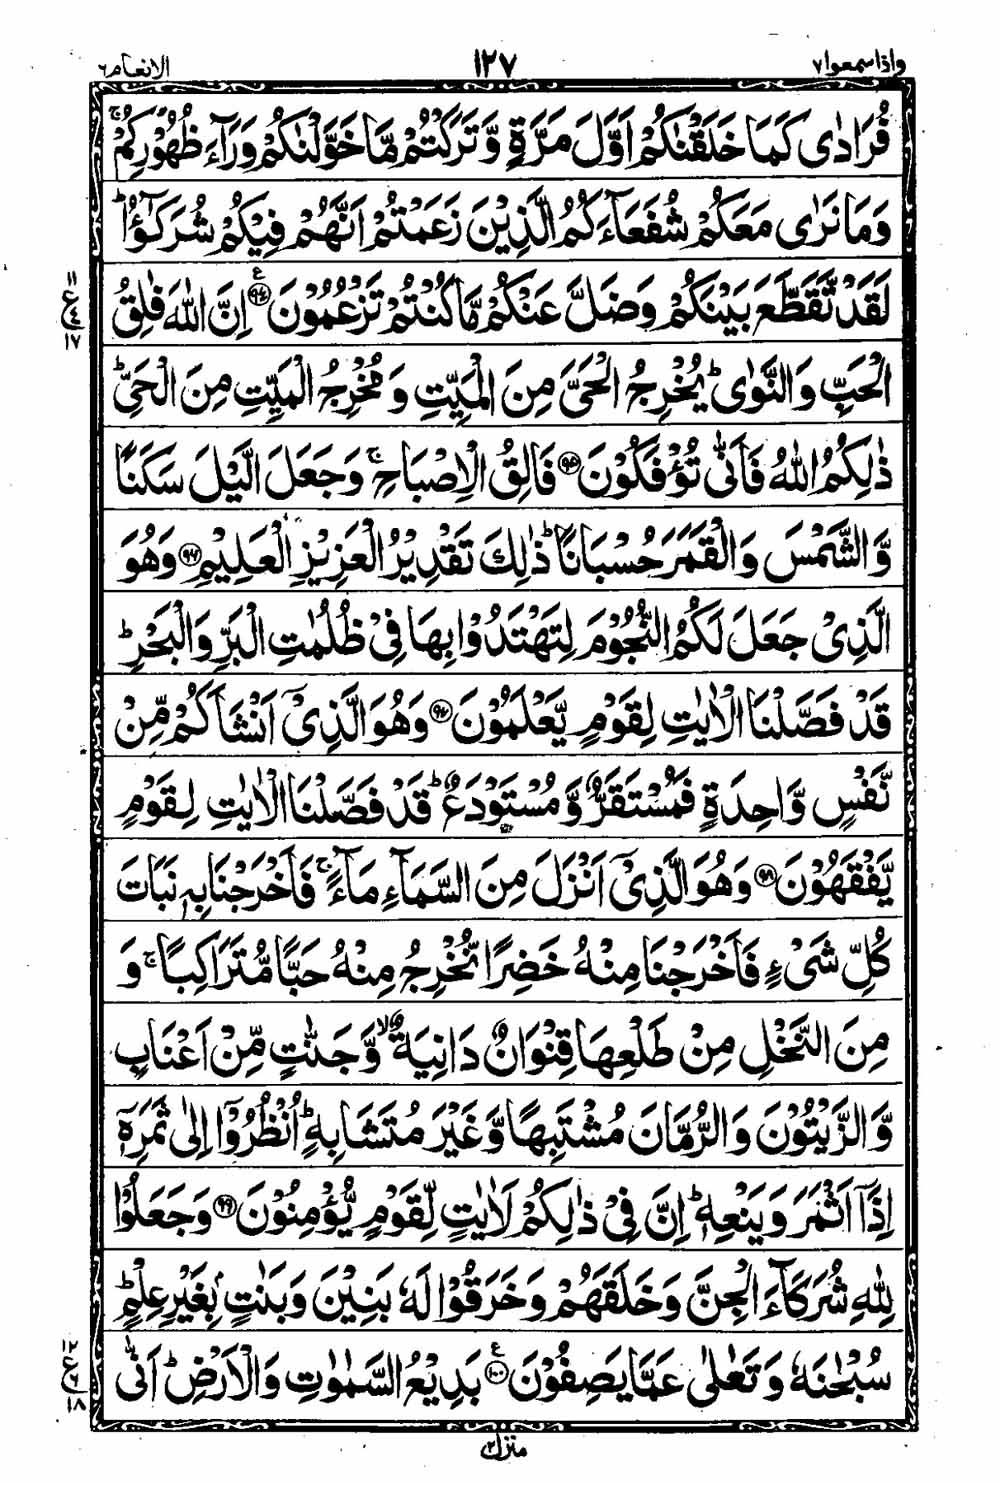 واذا سمعوا ٧ ١٢٧ الانعام ٦
فُرَادٰى كَمَا خَلَقْنٰكُمْ اَوَّلَ مَرَّةٍ وَّتَرَكْتُمْ مَّا خَوَّلْنٰكُمْ وَرَآءَ ظُهُوْرِكُمْ ۚ
وَمَا نَرٰى مَعَكُمْ شُفَعَآءَكُمُ الَّذِيْنَ زَعَمْتُمْ اَنَّهُمْ فِيْكُمْ شُرَكٰٓؤُا ؕ
لَقَدْ تَّقَطَّعَ بَيْنَكُمْ وَضَلَّ عَنْكُمْ مَّا كُنْتُمْ تَزْعُمُوْنَ ﴿٩٤﴾ ع اِنَّ اللّٰهَ فَالِقُ
الْحَبِّ وَالنَّوٰى ؕ يُخْرِجُ الْحَيَّ مِنَ الْمَيِّتِ وَمُخْرِجُ الْمَيِّتِ مِنَ الْحَيِّ ؕ
ذٰلِكُمُ اللّٰهُ فَاَنّٰى تُؤْفَكُوْنَ ﴿٩٥﴾ فَالِقُ الْاِصْبَاحِ ۚ وَجَعَلَ الَّيْلَ سَكَنًا
وَّالشَّمْسَ وَالْقَمَرَ حُسْبَانًا ؕ ذٰلِكَ تَقْدِيْرُ الْعَزِيْزِ الْعَلِيْمِ ﴿٩٦﴾ وَهُوَ
الَّذِيْ جَعَلَ لَكُمُ النُّجُوْمَ لِتَهْتَدُوْا بِهَا فِيْ ظُلُمٰتِ الْبَرِّ وَالْبَحْرِ ؕ
قَدْ فَصَّلْنَا الْاٰيٰتِ لِقَوْمٍ يَّعْلَمُوْنَ ﴿٩٧﴾ وَهُوَ الَّذِيْٓ اَنْشَاَكُمْ مِّنْ
نَّفْسٍ وَّاحِدَةٍ فَمُسْتَقَرٌّ وَّمُسْتَوْدَعٌ ؕ قَدْ فَصَّلْنَا الْاٰيٰتِ لِقَوْمٍ
يَّفْقَهُوْنَ ﴿٩٨﴾ وَهُوَ الَّذِيْٓ اَنْزَلَ مِنَ السَّمَآءِ مَآءً ۚ فَاَخْرَجْنَا بِهٖ نَبَاتَ
كُلِّ شَيْءٍ فَاَخْرَجْنَا مِنْهُ خَضِرًا نُّخْرِجُ مِنْهُ حَبًّا مُّتَرَاكِبًا ۚ وَ
مِنَ النَّخْلِ مِنْ طَلْعِهَا قِنْوَانٌ دَانِيَةٌ ۙ وَّجَنّٰتٍ مِّنْ اَعْنَابٍ
وَّالزَّيْتُوْنَ وَالرُّمَّانَ مُشْتَبِهًا وَّغَيْرَ مُتَشَابِهٍ ؕ اُنْظُرُوْٓا اِلٰى ثَمَرِهٖٓ
اِذَآ اَثْمَرَ وَيَنْعِهٖ ؕ اِنَّ فِيْ ذٰلِكُمْ لَاٰيٰتٍ لِّقَوْمٍ يُّؤْمِنُوْنَ ﴿٩٩﴾ وَجَعَلُوْا
لِلّٰهِ شُرَكَآءَ الْجِنَّ وَخَلَقَهُمْ وَخَرَقُوْا لَهٗ بَنِيْنَ وَبَنٰتٍ ۢ بِغَيْرِ عِلْمٍ ؕ
سُبْحٰنَهٗ وَتَعٰلٰى عَمَّا يَصِفُوْنَ ﴿١٠٠﴾ ع بَدِيْعُ السَّمٰوٰتِ وَالْاَرْضِ ؕ اَنّٰى
١١
ع ٤
١٧
١٢
ع ٦
١٨
منزل ٢